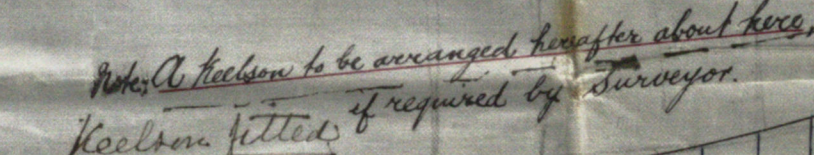 Note: A Keelson to be arranged hereafter about here,
if required by Surveyor.
Keelson fitted